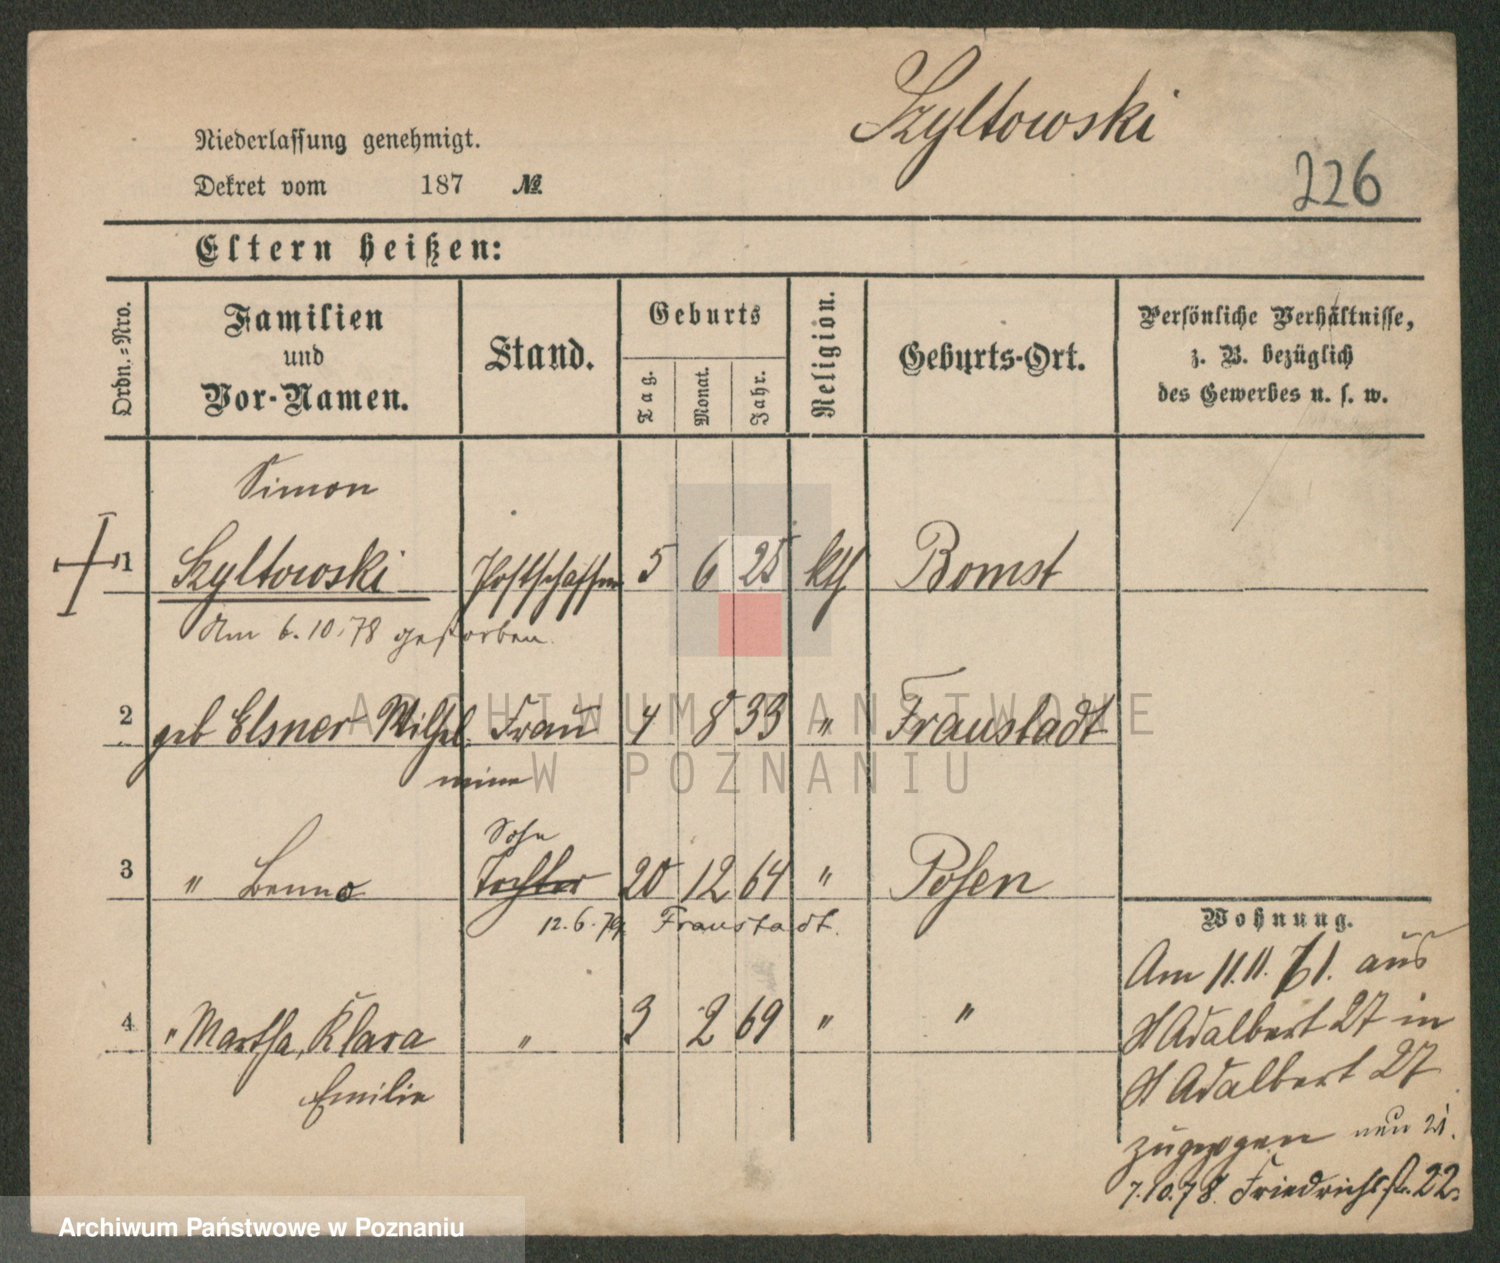 Szyltowski
Niederlassung genehmigt.
226
Dekret vom 187 №
Eltern heißen:
Ordn.=Nro.
Familien und Vor-Namen.
Stand.
Geburts
Tag.
Monat.
Jahr.
Religion.
Geburts-Ort.
Persönliche Verhältnisse,
z. B. bezüglich
des Gewerbes u. s. w.
Simon
1 Szyltowski Postschaffner 5 6 25 kth Bomst
Am 6.10.78 gestorben.
2 geb Elsner Wilhel Frau 4 8 33 " Fraustadt
mine
Sohn
3 " Benno Tochter 20 12 64 " Posen
12.6.79 Fraustadt.
4 " Martha, Klara " 3 2 69 " "
Emilie
Wohnung.
Am 11.11. 71. aus
St Adalbert 27 in
St Adalbert 27
zugezogen neu 21.
7.10.78. Friedrichsstr. 22.
ARCHIWUM PAŃSTWOWE
W POZNANIU
Archiwum Państwowe w Poznaniu